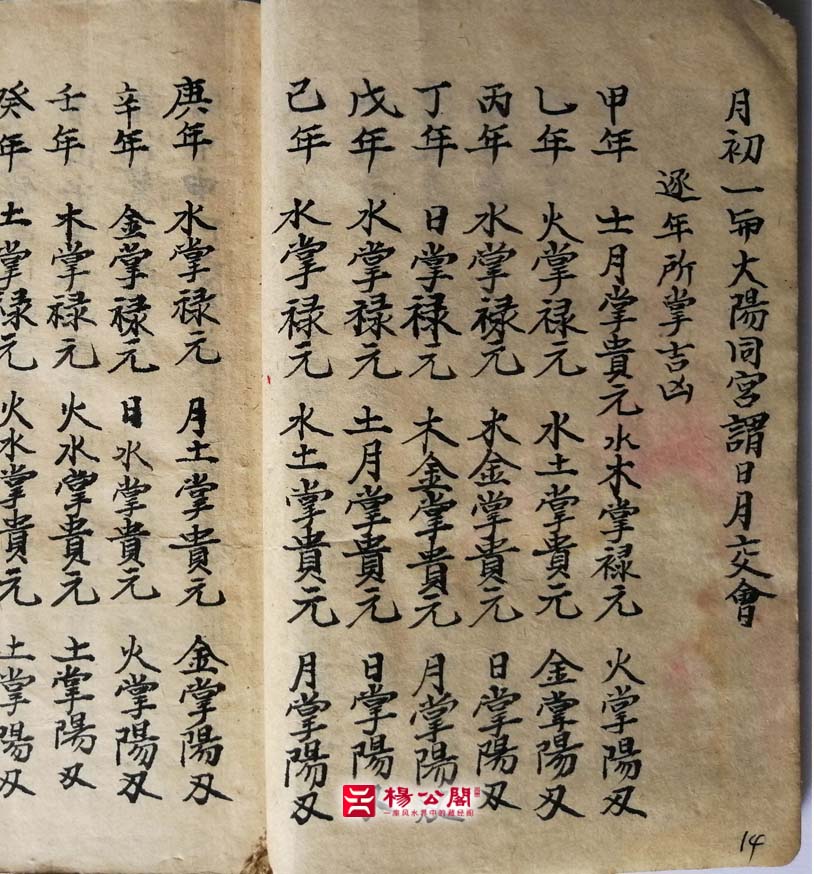 月初一卯太陽同宮謂日月交會
逐年所掌吉凶
甲年 土月掌貴元 水木掌祿元 火掌陽刄
乙年 火掌祿元 水土掌貴元 金掌陽刄
丙年 水掌祿元 木金掌貴元 日掌陽刄
丁年 日掌祿元 木金掌貴元 月掌陽刄
戊年 水掌祿元 土月掌貴元 日掌陽
己年 水掌祿元 水土掌貴元 月掌陽刄
庚年 水掌祿元 月土掌貴元 金掌陽刄
辛年 金掌祿元 日水掌貴元 火掌陽刄
壬年 木掌祿元 火水掌貴元 土掌陽刄
癸年 土掌祿元 火水掌貴元 土掌陽刄
楊公閣
一座风水界中的藏经阁
14